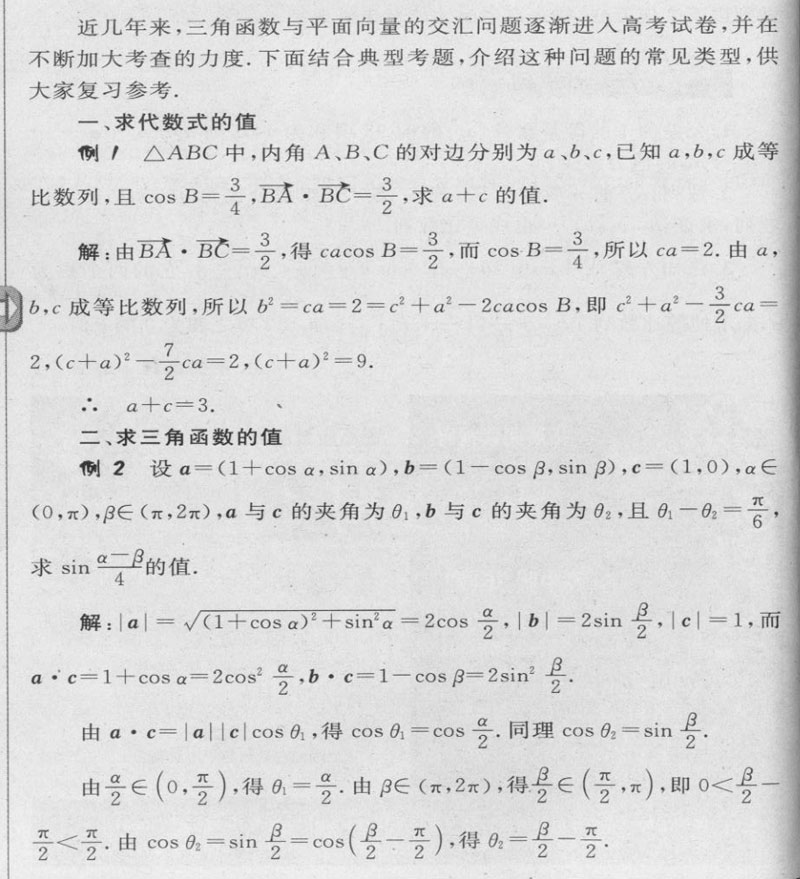 近几年来,三角函数与平面向量的交汇问题逐渐进入高考试卷,并在
不断加大考查的力度.下面结合典型考题,介绍这种问题的常见类型,供
大家复习参考.
一、求代数式的值
例1 △ABC 中,内角 A、B、C 的对边分别为 a、b、c,已知 a,b,c 成等
比数列,且 cos B=3/4,BA→·BC→=3/2,求 a+c 的值.
解:由BA→·BC→=3/2,得 cacos B=3/2,而 cos B=3/4,所以 ca=2.由 a,
b,c 成等比数列,所以 b²=ca=2=c²+a²-2cacos B,即 c²+a²-3/2ca=
2,(c+a)²-7/2ca=2,(c+a)²=9.
∴ a+c=3.
二、求三角函数的值
例2 设 a=(1+cos α,sin α),b=(1-cos β,sin β),c=(1,0),α∈
(0,π),β∈(π,2π),a 与 c 的夹角为 θ₁,b 与 c 的夹角为 θ₂,且 θ₁-θ₂=π/6,
求 sin (α-β)/4的值.
解:|a|=√((1+cos α)²+sin²α)=2cos α/2,|b|=2sin β/2,|c|=1,而
a·c=1+cos α=2cos² α/2,b·c=1-cos β=2sin² β/2.
由 a·c=|a||c|cos θ₁,得 cos θ₁=cos α/2.同理 cos θ₂=sin β/2.
由α/2∈(0,π/2),得 θ₁=α/2.由 β∈(π,2π),得β/2∈(π/2,π),即 0<β/2-
π/2<π/2.由 cos θ₂=sin β/2=cos(β/2-π/2),得 θ₂=β/2-π/2.